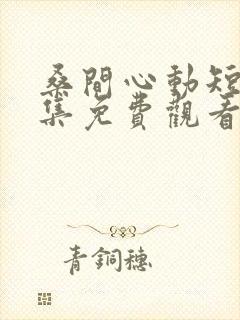 桑閒心動短
集免費觀看
青銅穗